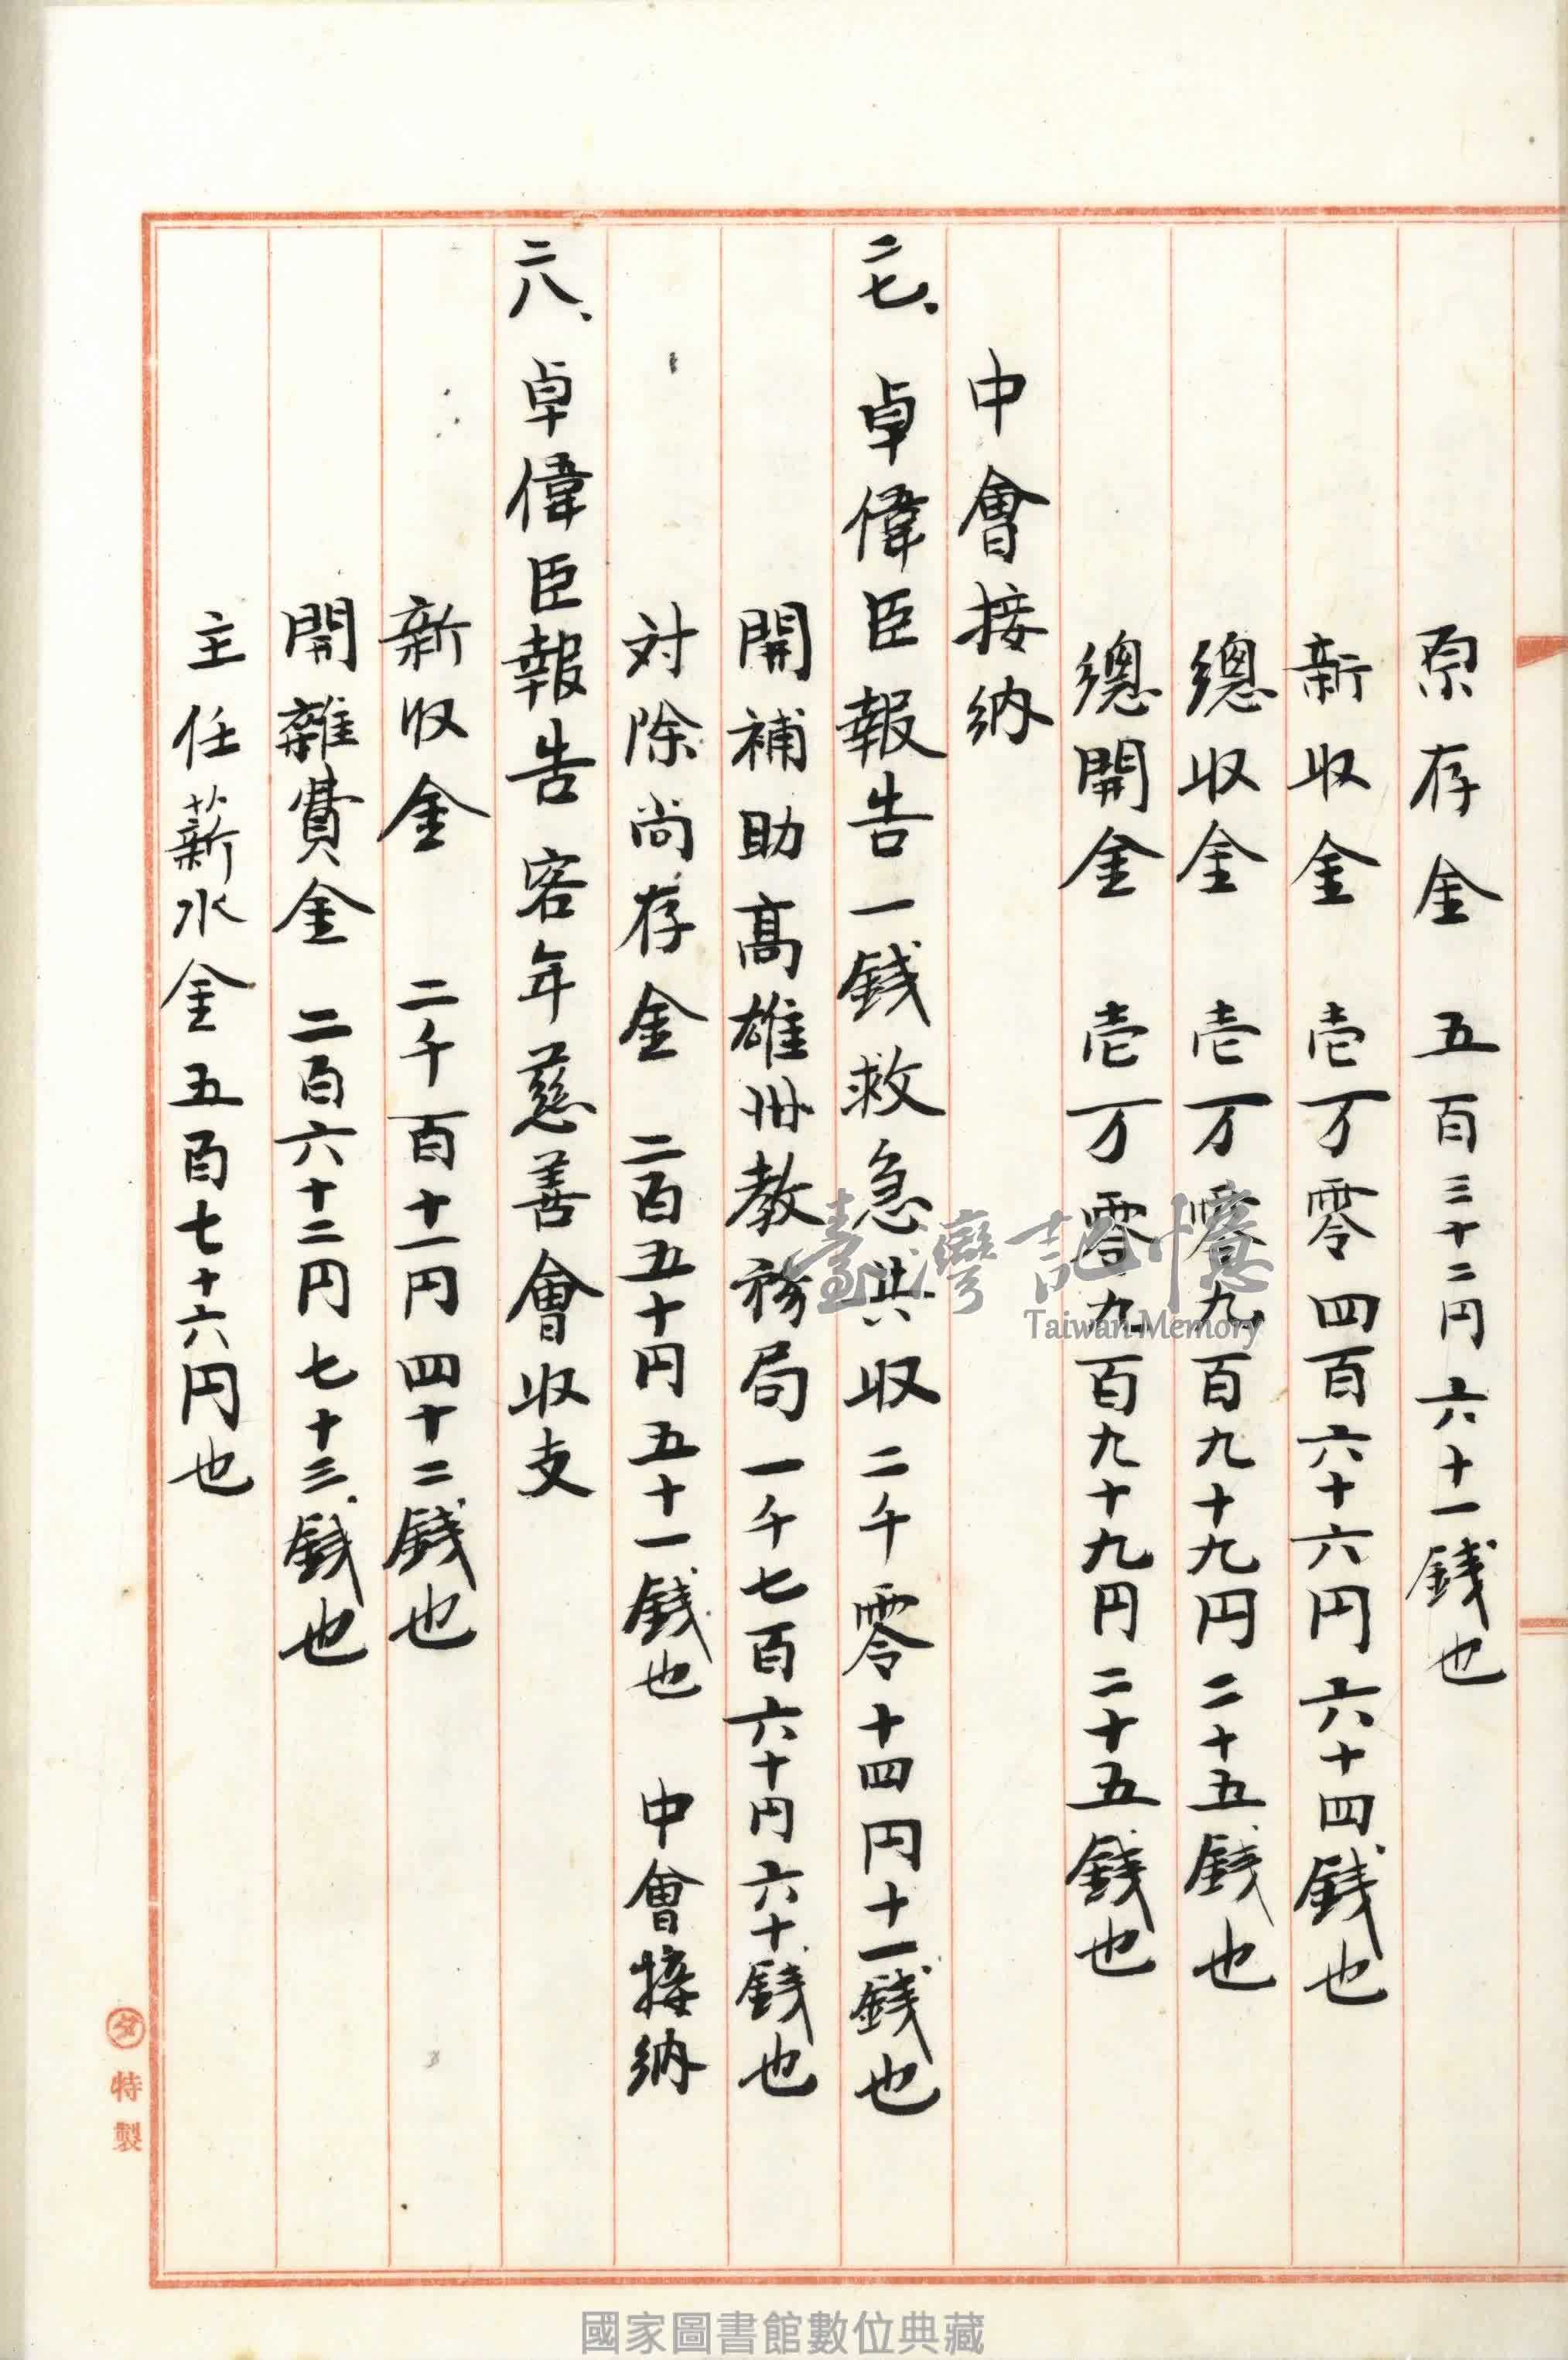 原存金　五百三十二円六十一銭也
新収金　壱万零四百六十六円六十四銭也
總収金　壱万零九百九十九円二十五銭也
總開金　壱万零九百九十九円二十五銭也
中會接納
二七、卓偉臣報告一銭救急共収二千零十四円十一銭也
開補助高雄州教務局一千七百六十円六十銭也
対除尚存金　二百五十円五十一銭也　中會接納
二八、卓偉臣報告客年慈善會収支
新収金　二千百十一円四十二銭也
開雜費金　二百六十二円七十三銭也
主任薪水金五百七十六円也
タ特製
臺灣記憶
Taiwan Memory
國家圖書館數位典藏